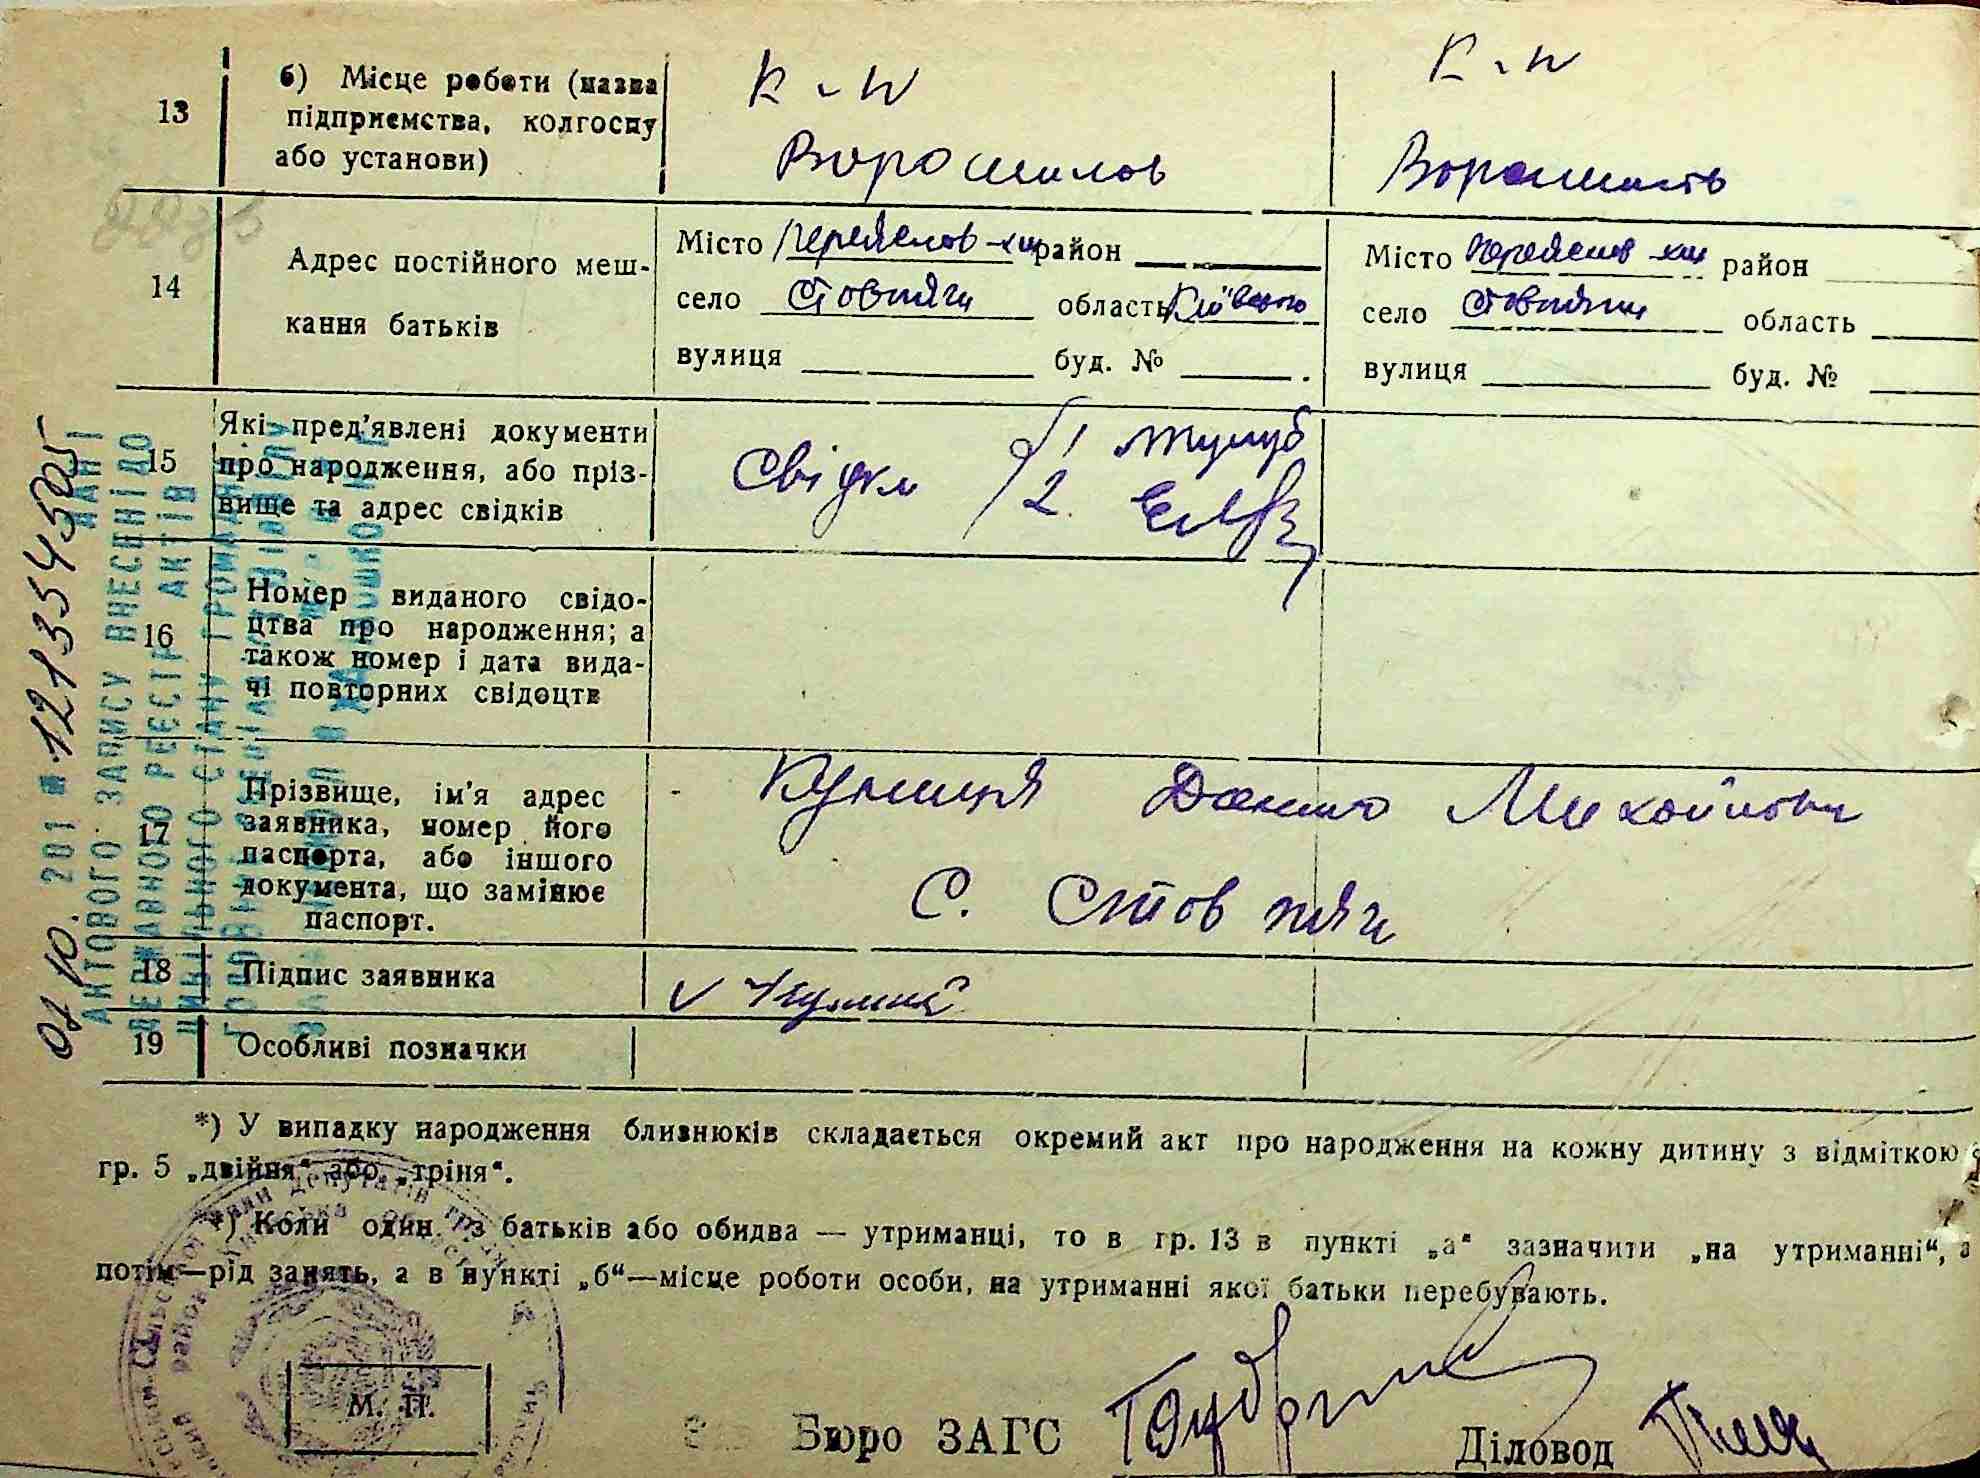 К-п К-п
13 б) Місце роботи (назва
підприємства, колгоспу
або установи) Ворошилов
14 Адрес постійного меш-
кання батьків
Місто Переяслов-хм район
село Стовпяги область Київсько
вулиця буд. №
Місто Переяслов-хм район
село Стовпяги область
вулиця буд. №
15 Які пред'явлені документи
про народження, або пріз-
вище та адрес свідків
Свідки 1
2.
16 Номер виданого свідо-
цтва про народження; а
також номер і дата вида-
чі повторних свідоцтв
17 Прізвище, ім'я адрес
заявника, номер його
паспорта, або іншого
документа, що замінює
паспорт.
Куниця Данило Михайлович
С. Стовпяги
18 Підпис заявника
19 Особливі позначки
*) У випадку народження близнюків складається окремий акт про народження на кожну дитину з відміткою
гр. 5 „двійня“ або „тріня“.
*) Коли один із батьків або обидва — утриманці, то в гр. 13 в пункті „а“ зазначити „на утриманні“, а
потім—рід занять, а в пункті „б“—місце роботи особи, на утриманні якої батьки перебувають.
М. П.
Бюро ЗАГС
Діловод
01 10. 201 12133545
АКТОВОГО ЗАПИСУ ВНЕСЕНІ ДО
ДЕРЖАВНОГО РЕЄСТР АКТІВ
ЦИВІЛЬНОГО СТАНУ ГРОМАДЯН